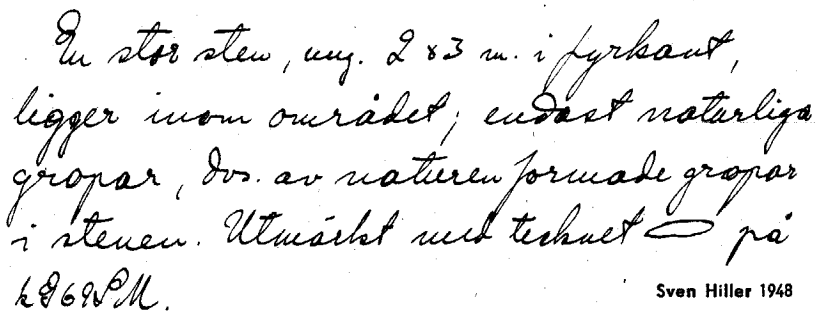 En stor sten, ung. 2 x 3 m. i fyrkant,
ligger inom området; endast naturliga
gropar, dvs. av naturen formade gropar
i stenen. Utmärkt med tecknet på
Sven Hiller 1948